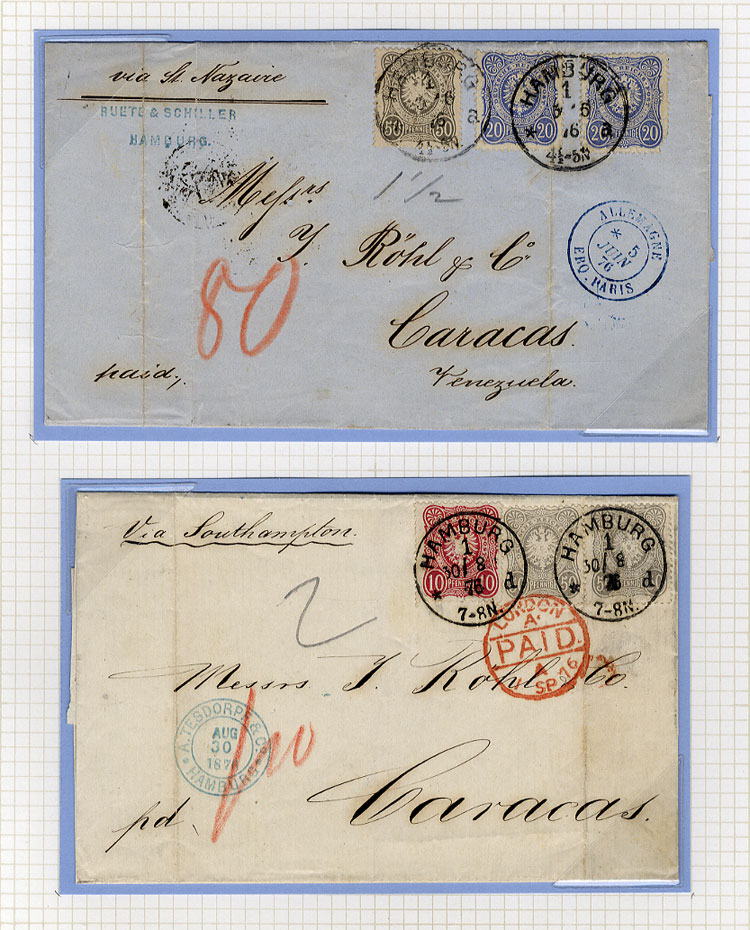 via St. Nazaire
RUETE & SCHILLER
HAMBURG.
50 PFENNIGE 50
20 PFENNIGE 20
20 PFENNIGE 20
HAMBURG
76
a
4½-5N
HAMBURG
1
76
* a
4½-5N
Messrs
1½
J. Röhl & Co
ALLEMAGNE
*
5
JUIN
76
ERQ. PARIS
80
Caracas.
paid,
Venezuela.
Via Southampton.
10 PFENNIGE 10
50
HAMBURG
1
30 8
76
* d
7-8N.
HAMBURG
1
30 8
76
* d
7-8N.
2
LONDON
A.
PAID.
1
SP 76
Messrs J. Röhl & Co.
A. TESDORPF & Co.
AUG
30
1876
* HAMBURG *
pd.
Caracas.